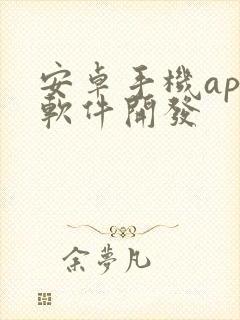 安卓手機ap
軟件開發
余夢凡